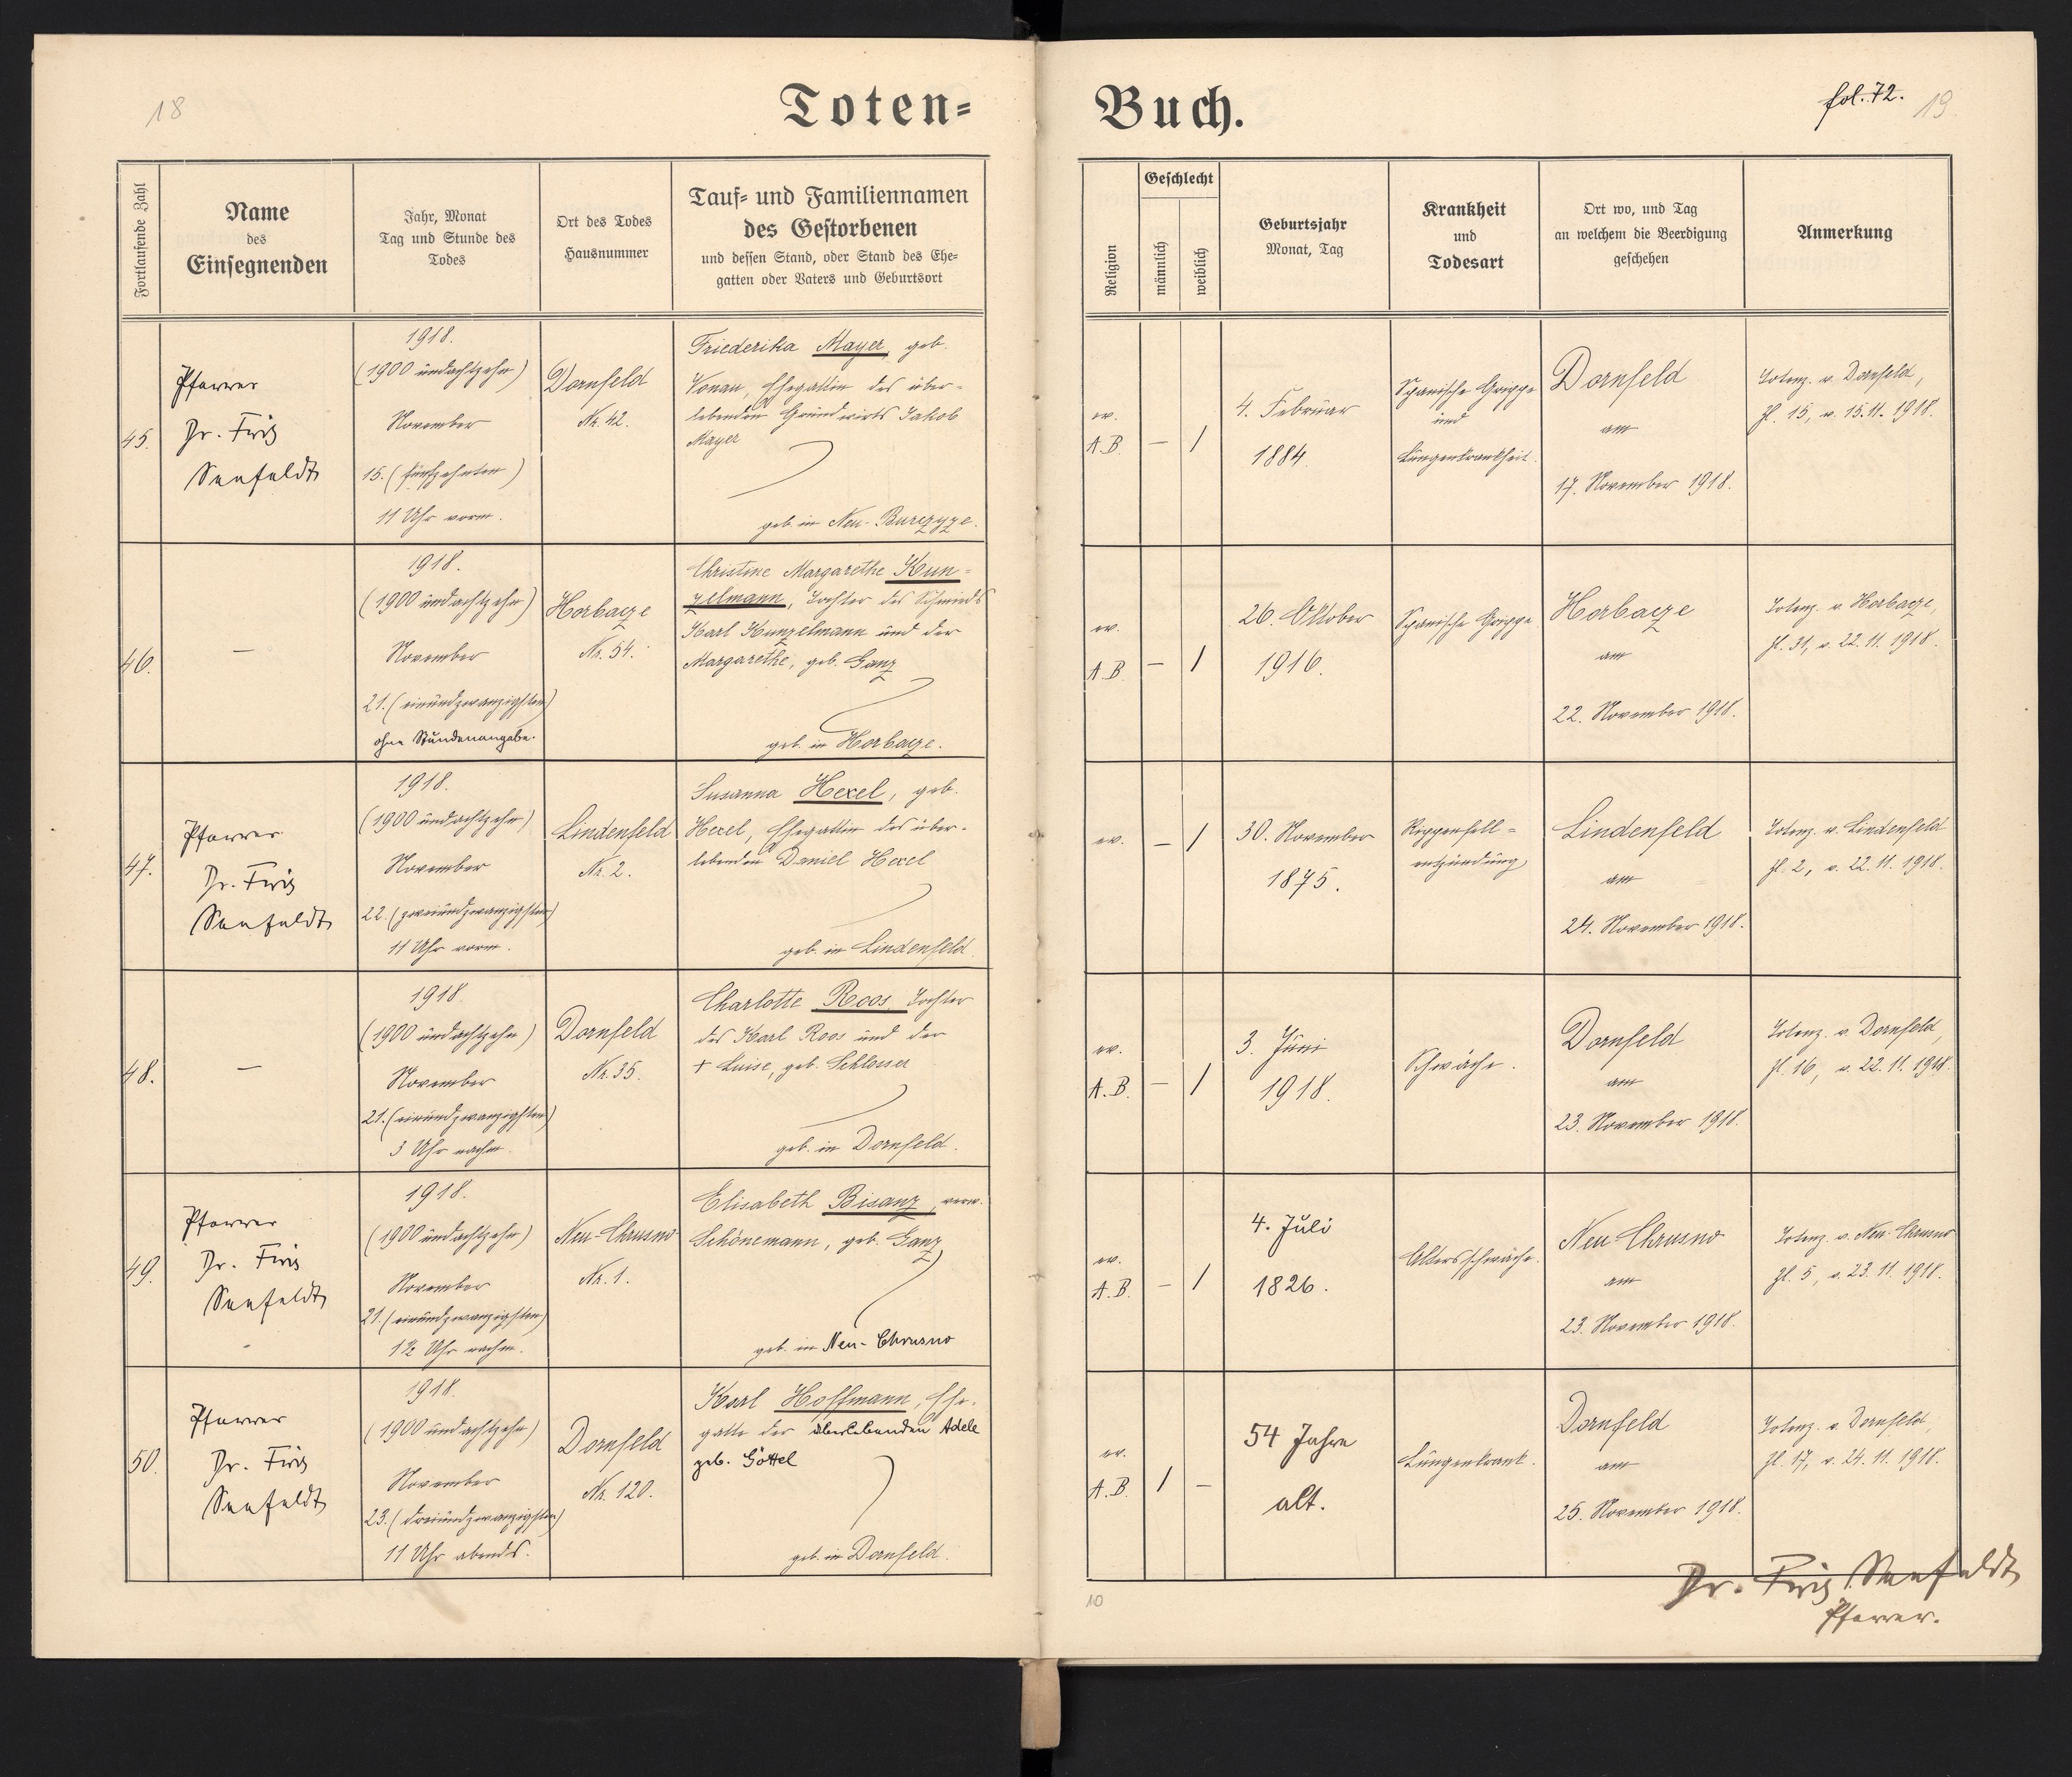 18
Toten=
Buch.
fol. 72.
19
Fortlaufende Zahl
Name
des
Einsegnenden
Jahr, Monat
Tag und Stunde des
Todes
Ort des Todes
Hausnummer
Tauf= und Familiennamen
des Gestorbenen
und dessen Stand, oder Stand des Ehe=
gatten oder Vaters und Geburtsort
Religion
Geschlecht
männlich
weiblich
Geburtsjahr
Monat, Tag
Krankheit
und
Todesart
Ort wo, und Tag
an welchem die Beerdigung
geschehen
Anmerkung
45.
Pfarrer
Dr. Fritz
Seefeldt
1918.
(1900 undachtzehn)
November
15. (fünfzehnten)
11 Uhr vorm.
Dornfeld
Nr. 42.
Friederika Mayer, geb.
Ehegattin des über-
lebenden Grundwirts Jakob
Mayer
geb. in Neu-Burczyze.
ev.
A.B.
—
1
4. Februar
1884.
Spanische Grippe
und
Lungenkrankheit.
Dornfeld
am
17. November 1918.
Totenz. v. Dornfeld,
Zl. 15, v. 15.11.1918.
46.
—
1918.
(1900 undachtzehn)
November
21. (einundzwanzigsten)
ohne Stundenangabe.
Horbacze
Nr. 54.
Christine Margarethe Kun-
zelmann, Tochter des Schmieds
Karl Kunzelmann und der
Margarethe, geb. Ganz
geb. in Horbacze.
ev.
A.B.
—
1
26. Oktober
1916.
Spanische Grippe
Horbacze
am
22. November 1918.
Totenz. v. Horbacze,
Zl. 31, v. 22.11.1918.
47.
Pfarrer
Dr. Fritz
Seefeldt
1918.
(1900 undachtzehn)
November
22. (zweiundzwanzigsten)
11 Uhr vorm.
Lindenfeld
Nr. 2.
Susanna Hexel, geb.
Hexel, Ehegattin des über-
lebenden Daniel Hexel
geb. in Lindenfeld.
ev.
—
1
30. November
1875.
Rippenfell=
entzündung
Lindenfeld
am
24. November 1918.
Totenz. v. Lindenfeld
Zl. 2, v. 22.11.1918.
48.
—
1918
(1900 undachtzehn)
November
21. (einundzwanzigsten)
3 Uhr nachm.
Dornfeld
Nr. 35.
Charlotte Roos, Tochter
des Karl Roos und der
+ Luise, geb. Schlosser
geb. in Dornfeld.
ev.
A.B.
—
1
3. Juni
1918.
Schwäche.
Dornfeld
am
23. November 1918.
Totenz. v. Dornfeld,
Zl. 16, v. 22.11.1918.
49.
Pfarrer
Dr. Fritz
Seefeldt
1918.
(1900 undachtzehn)
November
21. (einundzwanzigsten)
1½ Uhr nachm.
Neu-Chrusno
Nr. 1.
Elisabeth Bisanz, verw.
Schönemann, geb. Ganz
geb. in Neu-Chrusno
ev.
A.B.
—
1
4. Juli
1826.
Altersschwäche.
Neu-Chrusno
am
23. November 1918.
Totenz. v. Neu-Chrusno
Zl. 5, v. 23.11.1918.
50.
Pfarrer
Dr. Fritz
Seefeldt
1918.
(1900 undachtzehn)
November
23. (dreiundzwanzigsten)
11 Uhr abends.
Dornfeld
Nr. 120.
Karl Hoffmann, Ehe-
gatte der überlebenden Adele
geb. Göttel
geb. in Dornfeld.
ev.
A.B.
1
—
54 Jahre
alt.
Lungenkrank.
Dornfeld
am
25. November 1918.
Totenz. v. Dornfeld,
Zl. 17, v. 24.11.1918.
10
Dr. Fritz Seefeldt
Pfarrer.